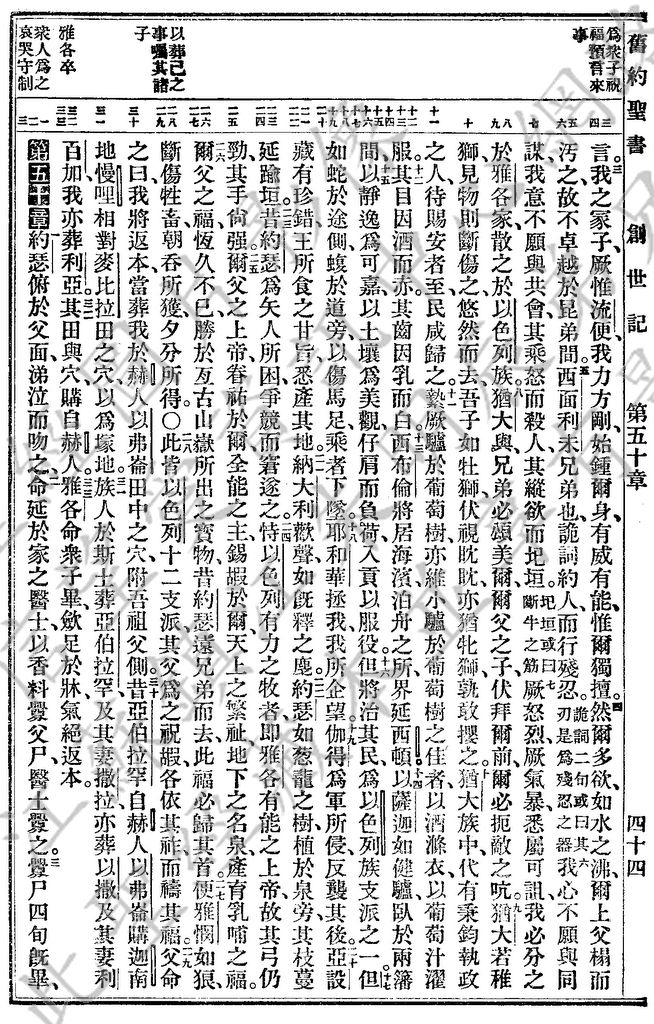 舊約聖書　創世記　第五十章　四十四
為衆子祝
福預言來
事
以葬己之
事囑其諸
子
雅各卒
衆人為之
哀哭守制
言我之冢子厥惟流便我力方剛始鍾爾身有威有能惟爾獨擅然爾多欲如水之沸爾上父榻而
汚之故不卓越於昆弟間西面利未兄弟也詭詞約人而行殘忍詭詞二句或曰其刃是為殘忍之器我心不願與同
謀我意不願與共會其乘怒而殺人其縱欲而圮垣圮垣或曰斷牛之筋厥怒烈厥氣暴悉屬可詛我必分之
於雅各家散之於以色列族猶大與兄弟必頌美爾爾父之子伏拜爾前爾必扼敵之吭猶大若稚
獅見物則斷傷之悠然而去吾子如牡獅伏視眈眈亦猶牝獅孰敢攖之猶大族中代有秉鈞執政
之人待賜安者至民咸歸之縶厥驢於葡萄樹亦維小驢於葡萄樹之佳者以酒滌衣以葡萄汁濯
服其目因酒而赤其齒因乳而白西布倫將居海濱泊舟之所界延西頓以薩迦如健驢臥於兩藩
間以靜逸為可嘉以土壤為美觀仔肩而負荷入貢以服役但將治其民為以色列族支派之一但
如蛇於途側蝮於道旁以傷馬足乘者下墜耶和華拯我我所企望伽得為軍所侵反襲其後亞設
藏有珍錯王所食之甘旨悉產其地納大利歡聲如旣釋之麀約瑟如葱蘢之樹植於泉旁其枝蔓
延踰垣昔約瑟為矢人所困爭競而窘逐之恃以色列有力之牧者卽雅各有能之上帝故其弓仍
勁其手尙强爾父之上帝眷祐於爾全能之主錫嘏於爾天上之繁祉地下之名泉產育乳哺之福
爾父之福恆久不已勝於亙古山嶽所出之寶物昔約瑟遠兄弟而去此福必歸其首便雅憫如狼
斷傷牲畜朝吞所獲夕分所得○此皆以色列十二支派其父為之祝嘏各依其祚而禱其福父命
之曰我將返本當葬我於赫人以弗崙田中之穴附吾祖父側昔亞伯拉罕自赫人以弗崙購迦南
地慢哩相對麥比拉田之穴以為塚地族人於斯土葬亞伯拉罕及其妻撒拉亦葬以撒及其妻利
百加我亦葬利亞其田與穴購自赫人雅各命衆子畢斂足於牀氣絕返本
第五十章約瑟俯於父面涕泣而吻之命延於家之醫士以香料釁父尸醫士釁之釁尸四旬旣畢